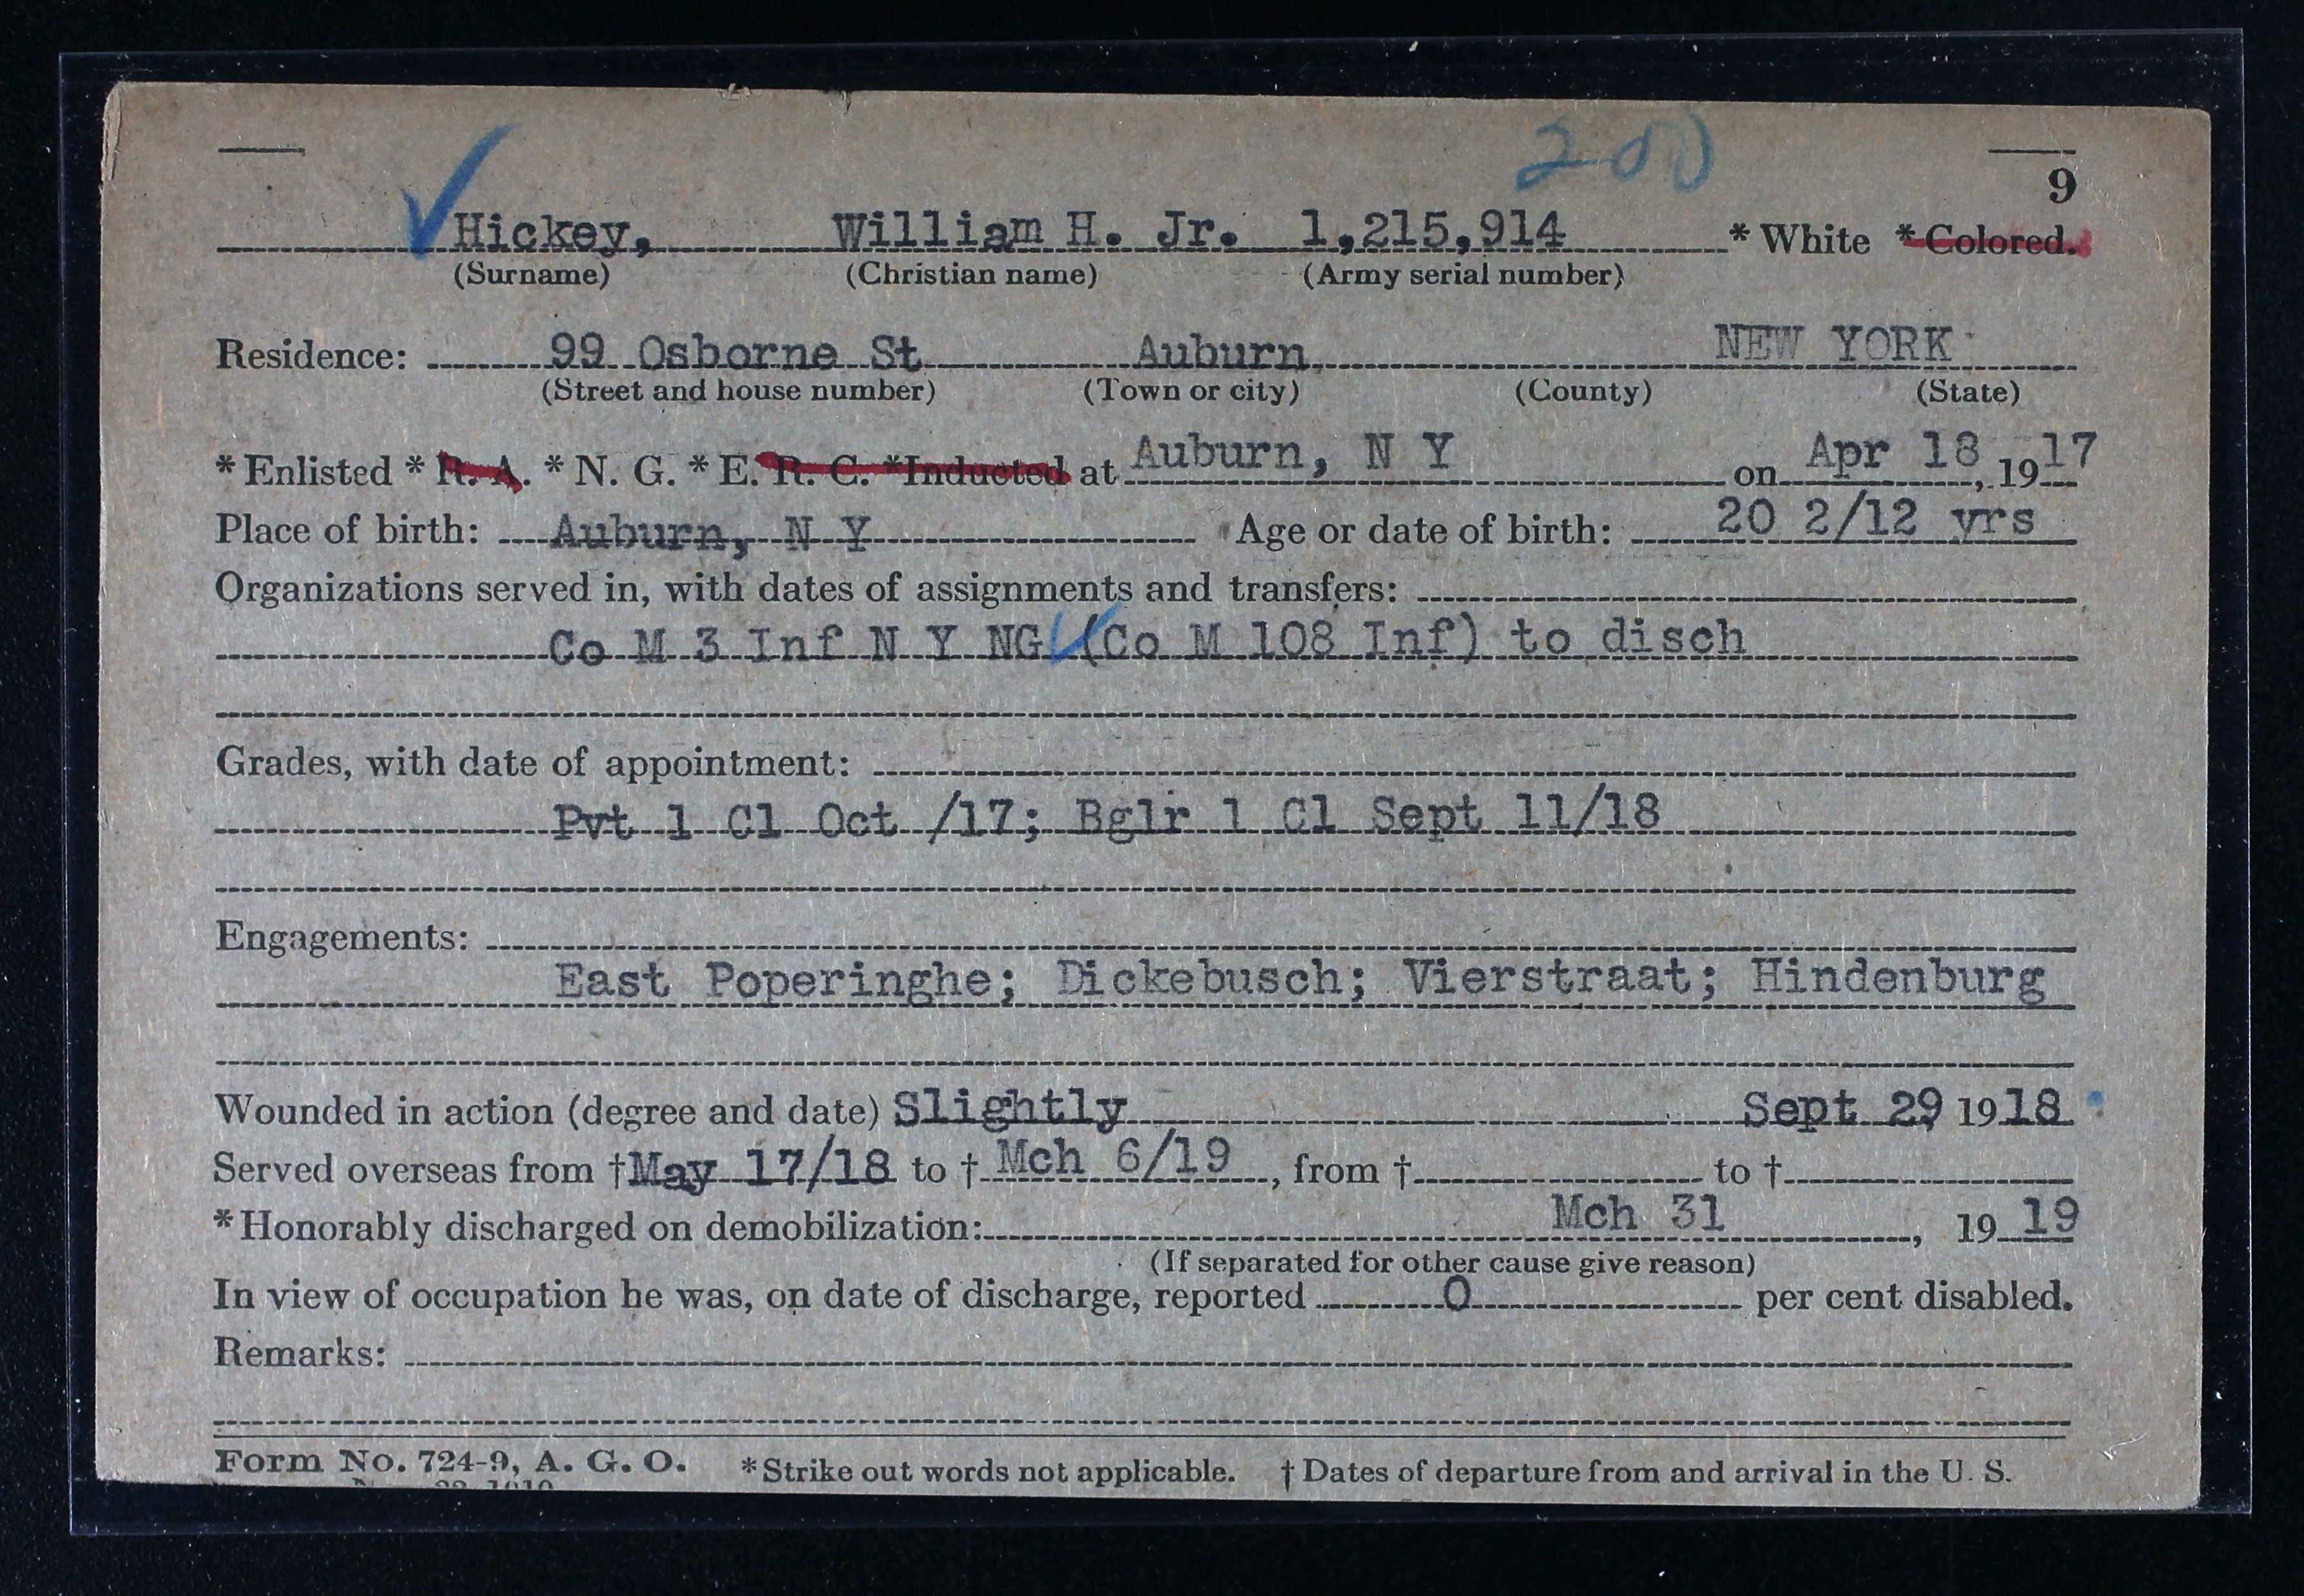 200
9
Hickey, William H. Jr. 1,215,914 * White * Colored.
(Surname) (Christian name) (Army serial number)
Residence: 99 Osborne St Auburn, NEW YORK
(Street and house number) (Town or city) (County) (State)
* Enlisted * R. A. * N. G. * E. R. C. * Inducted at Auburn, N Y on Apr 18, 1917
Place of birth: Auburn, N Y Age or date of birth: 20 2/12 yrs
Organizations served in, with dates of assignments and transfers:
Co M 3 Inf N Y NG (Co M 108 Inf) to disch
Grades, with date of appointment:
Pvt 1 Cl Oct /17; Bglr 1 Cl Sept 11/18
Engagements:
East Poperinghe; Dickebusch; Vierstraat; Hindenburg
Wounded in action (degree and date) Slightly Sept 29 1918
Served overseas from † May 17/18 to † Mch 6/19, from † to †
* Honorably discharged on demobilization: Mch 31, 1919
(If separated for other cause give reason)
In view of occupation he was, on date of discharge, reported 0 per cent disabled.
Remarks:
Form No. 724-9, A. G. O. * Strike out words not applicable. † Dates of departure from and arrival in the U. S.